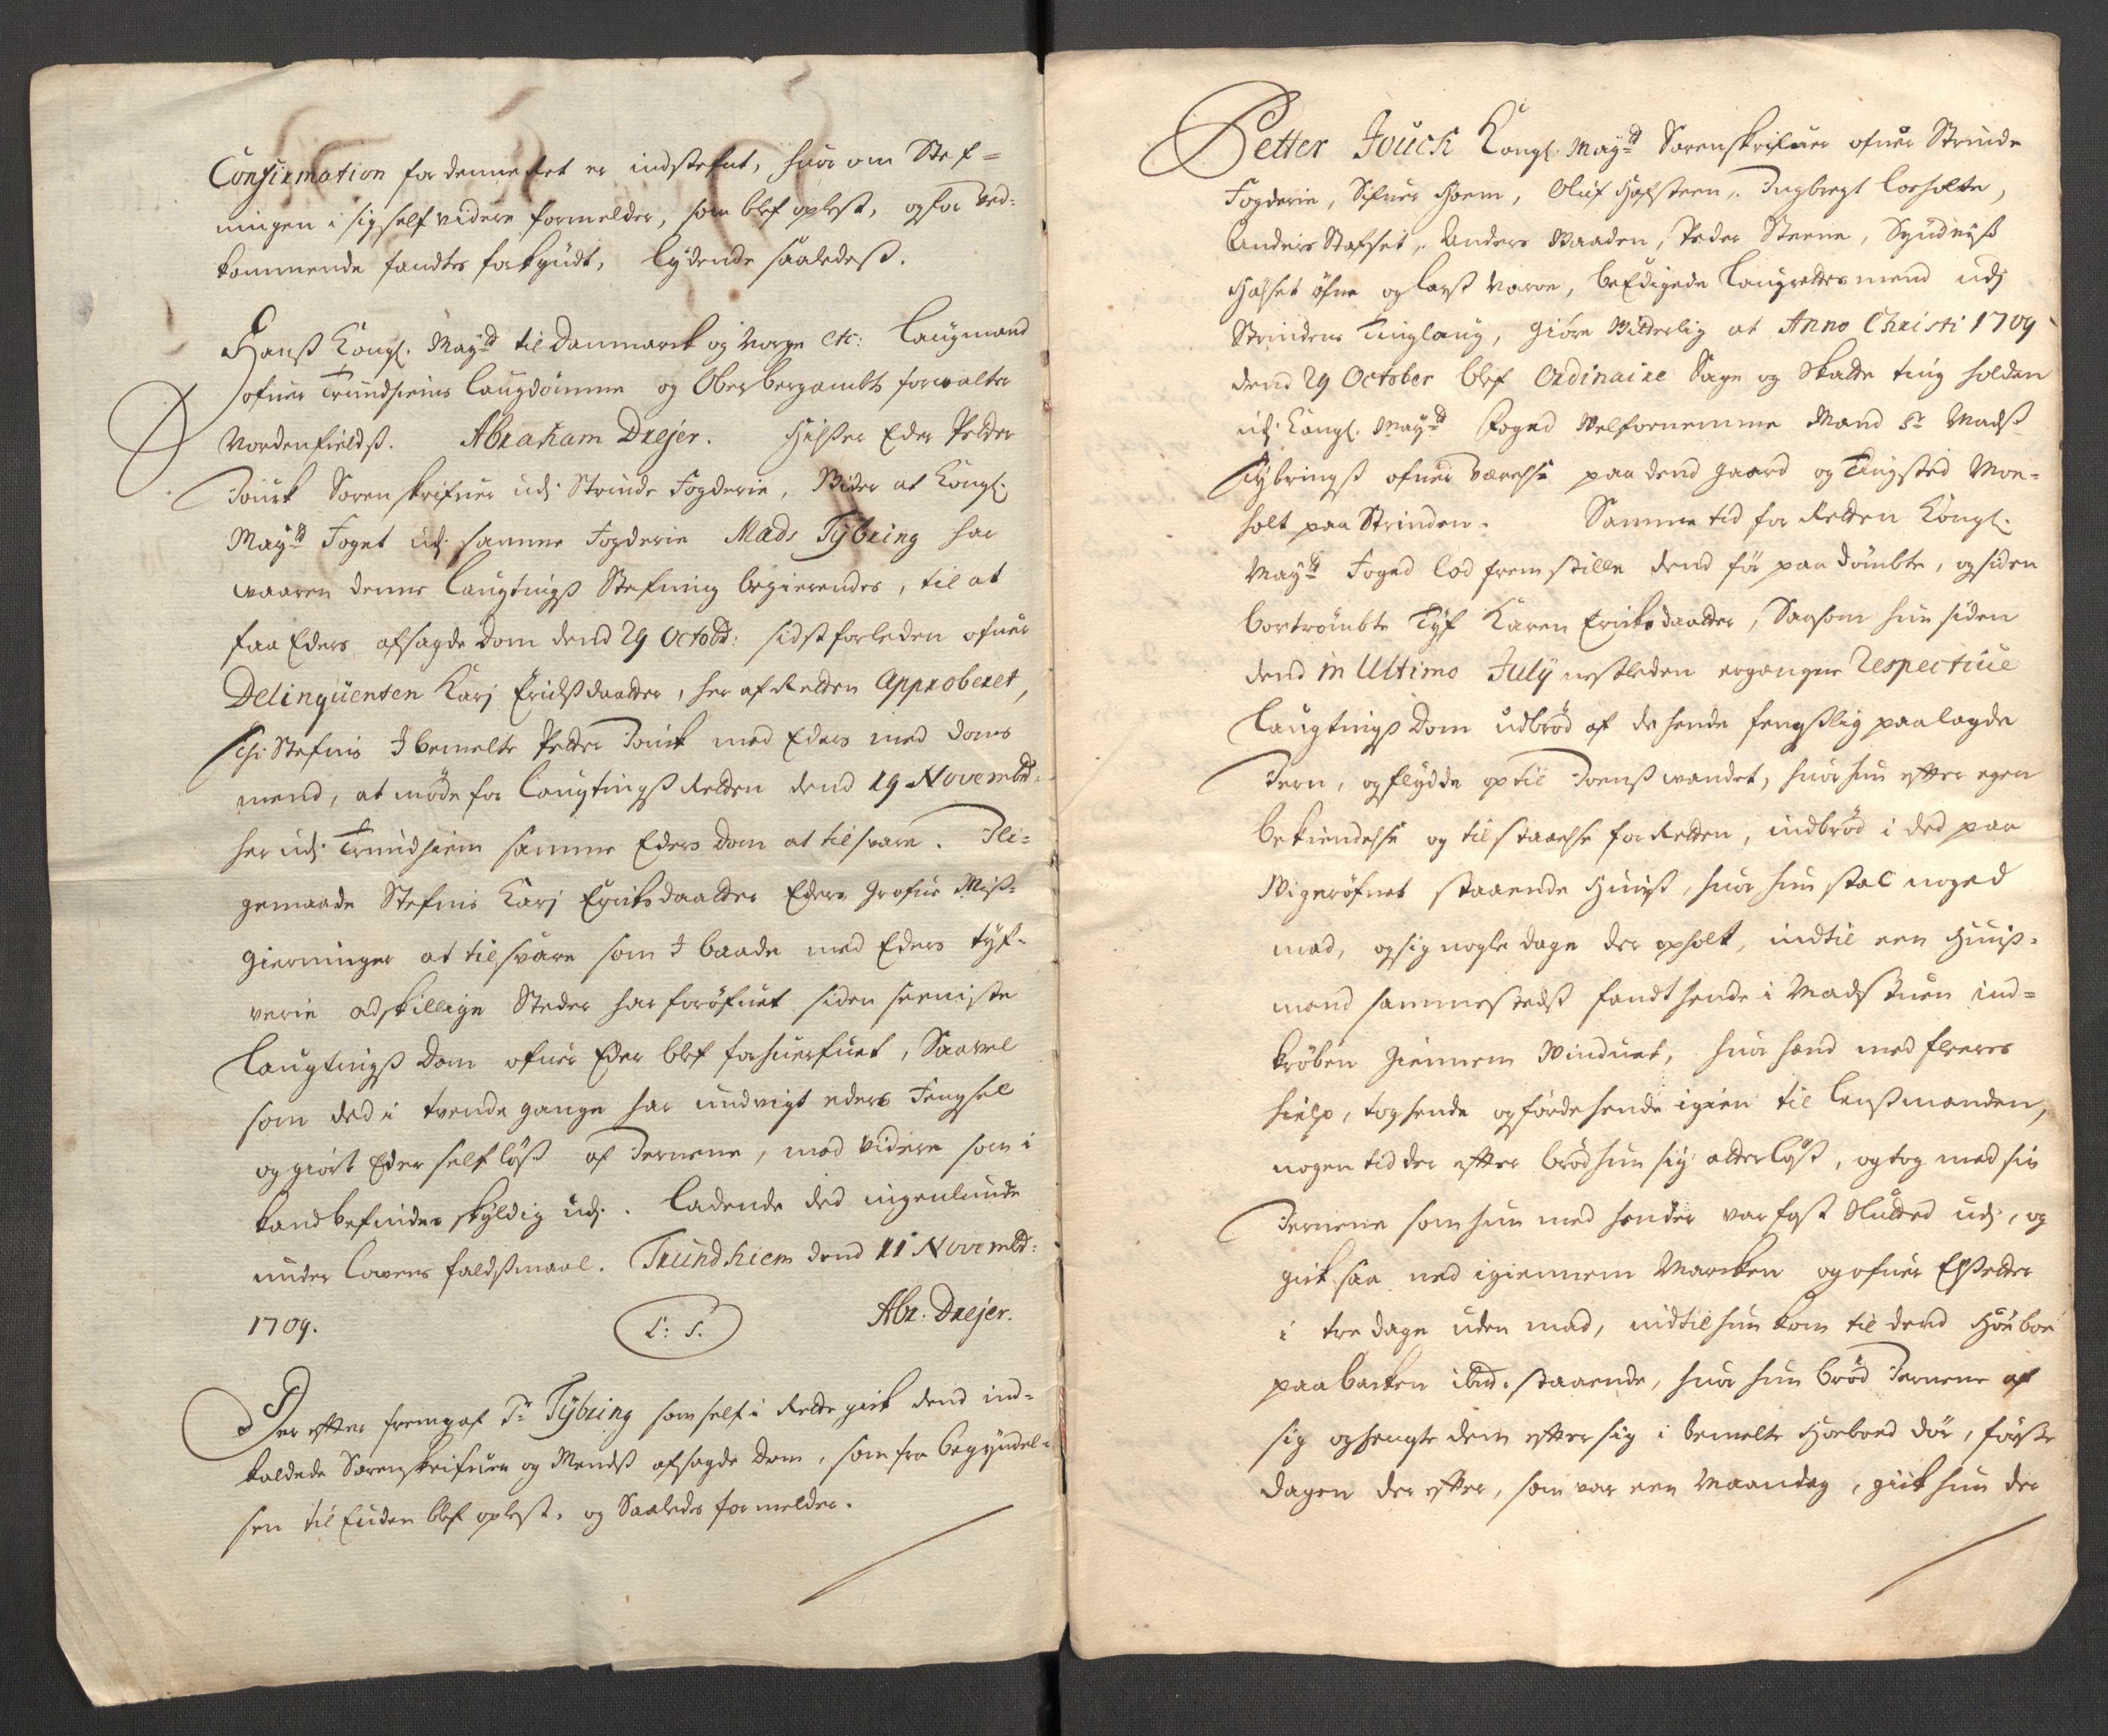 Confirmation for denne Ret er indstefnt, huor om Stef=
ningen i sig self videre formelder, som blef oplest, og for ved-
kommende fandtes forkyndt, lydende saaledeß.
Hanß Kongl. Mayts til Danmarck og Norge etc: Laugmand
ofuer Trundhiems Laugdømme og Oberbergambts forvalter
Nordenfieldß. Abraham Drejer. Hilßer Eder Petter
Jouck Sorenskrifuer udj Strinde Fogderie, Wider at Kongl.
Mayts Foget udj samme Fogderie Mads Tybring har
waaren denne Laugtingß Stefning begierendes, til at
faa Eders afsagde Dom dend 29 Octobr: sidst forleden ofuer
Delinquenten Karj Erichßdaatter, her af Retten Approberet,
Thi Stefnis I bemelte Petter Jouck med Eders med Doms
mend, at møde for Laugtingß Retten dend 19 Novembr:
her udj Trundhiem samme Eders Dom at tilsvare. Ili=
gemaade Stefnis Karj Eriksdaatter Eders grofue Miß=
gierninger at tilsvare som I baade med Eders tyf-
verie adskillige Steder har forøfuet siden seeniste
Laugtingß Dom ofuer Eder blef forhuerfuet, Saavel
som det i tvende gange har undvigt eders Fengsel
og giort Eder self løß af Jernene, med videre som i
kand befindes skyldig udj. Ladende det ingenlunde
under Lovens faldßmaal. Trundhiem dend 11 Novembr:
1709. L: S. Abr: Drejer.
Der efter fremgaf Sr Tybring som self i Rette gick dend ind=
kaldede Sorenskrifuer og Mendß afsagde Dom, som fra begyndel=
sen til Enden blef oplest, og Saaledes formelder.
Petter Jouck Kongl. Mayts Sorenskrifuer ofuer Strinde
Fogderie, Sifuer Hoem, Oluf Hofsteen, Ingbregt Loeholte,
Anders Stafset, Anders Waaden, Peder Steene,
Halset øfre og Larß Narve, beEdigede Laugrettesmend udj
Strindens Tinglaug, Giøre Witterlig at Anno Christi 1709
dend 29 October blef Ordinaire Sage og Skatte ting holden
udj Kongl. Mayts Foged Welfornemme Mand Sr Madß
Tybringß ofuerværelse paa dend gaard og Tingsted Moe=
holt paa Strinden. Samme tid for Retten Kongl.
Mayts Foged lod fremstille dend før paadømbte, og siden
bortrømbte Tyf Karen Eriksdaatter, Saasom hun siden
dend in Ultimo July nestleden ergangne Respective
Laugtingß Dom udbrød af de hende fengßlig paalagde
Jern, og flydde op til Jonßwandet, huor hun efter egen
bekiendelse og tilstaaelse for Retten, indbrød i det paa
Wigerøfnet staaende Huuß, huor hun stal noged
mad, og sig nogle dage der opholt, indtil een Huuß-
mand sammestedß fandt hende i Madstuen ind=
krøben giennem Winduet, huor hand med fleeres
hielp, tog hende og førde hende igien til Lenßmanden,
nogen tid der efter brød hun sig atter løß, og tog med sin
Jernene som hun med hender var fast Slutted udj, og
gick saa ned igiennem Marcken og ofuer Elfß
i tre dage uden mad, indtil hun kom til dend Høeboe
paa backen ibid. staaende, huor hun brød Jernene af
sig og hengte dem efter sig i bemelte Høeboed dør, første
dagen der efter, som var een Maandag, gick hun der